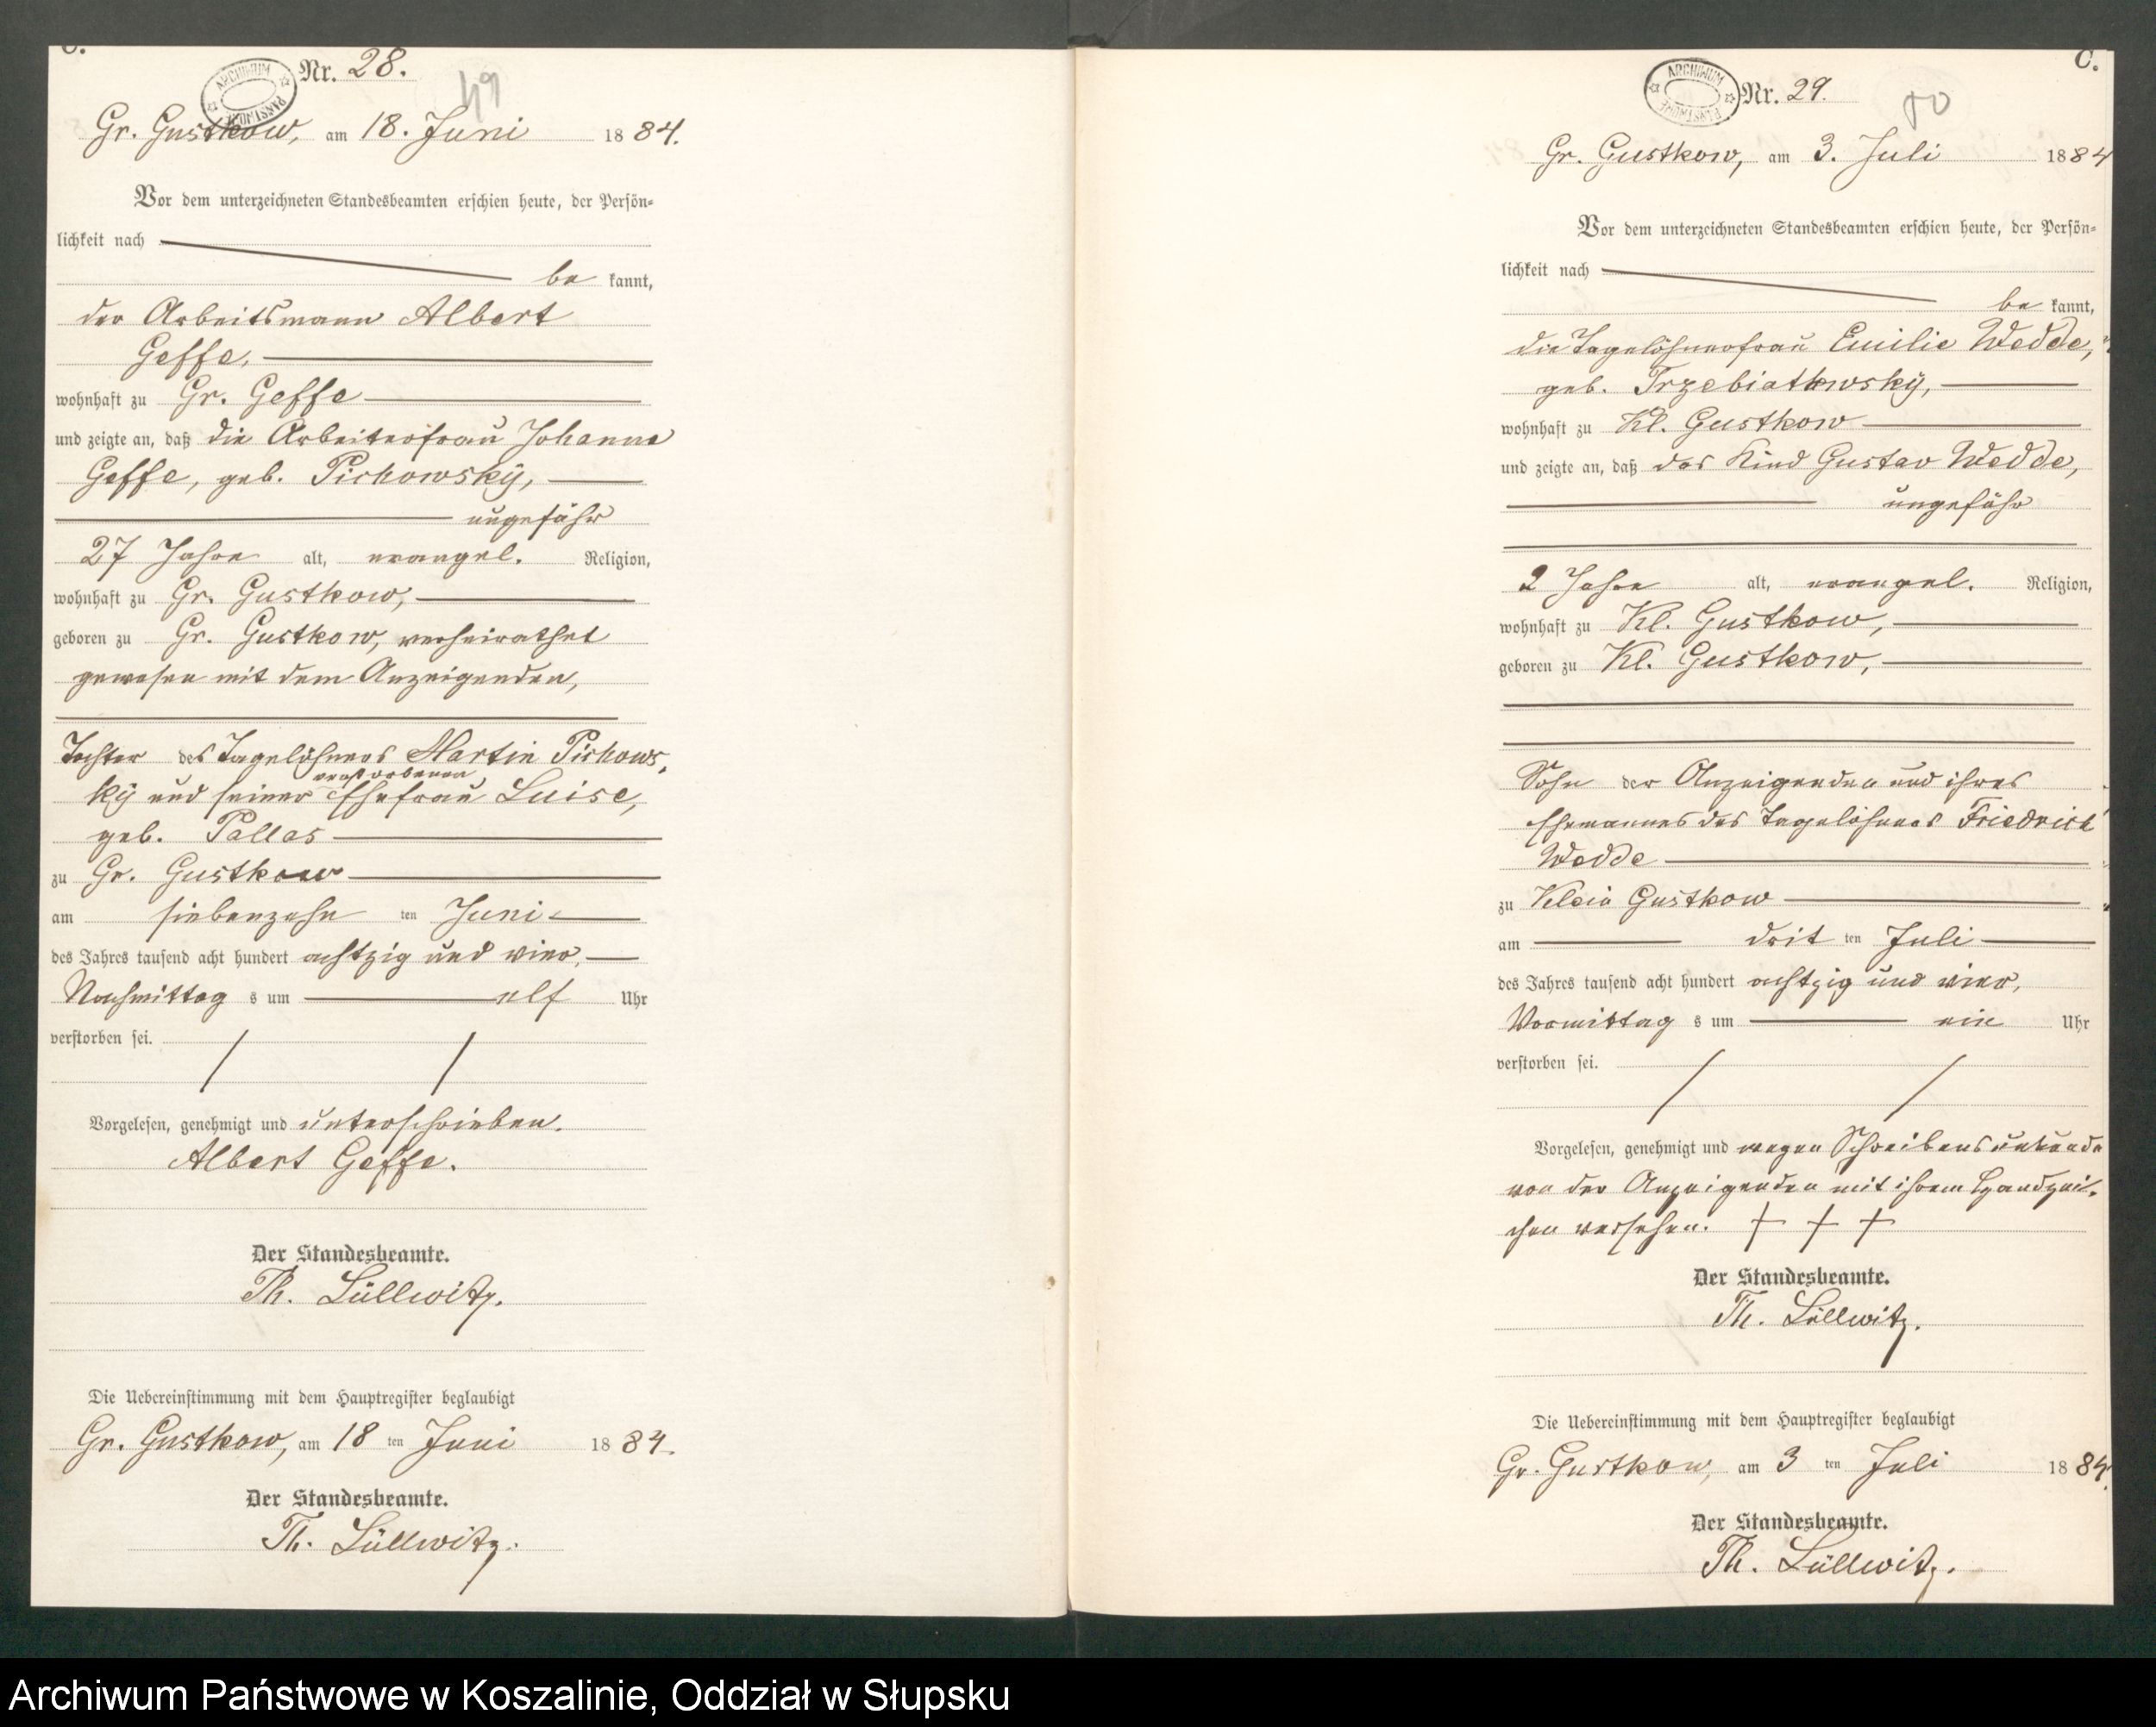 C.
Nr. 28.
49
ARCHIWUM PAŃSTWOWE
Gr. Gustkow, am 18. Juni 1884.
Vor dem unterzeichneten Standesbeamten erschien heute, der Persön=
lichkeit nach
be kannt,
der Arbeitsmann Albert
Geffe,
wohnhaft zu Gr. Geffe
und zeigte an, daß die Arbeiterfrau Johanne
Geffe, geb. Pichowsky,
ungefähr
27 Jahre alt, evangel. Religion,
wohnhaft zu Gr. Gustkow,
geboren zu Gr. Gustkow, verheirathet
gewesen mit dem Anzeigenden,
Tochter des Tagelöhners Martin Pichows-
verstorbenen
ky und seiner Ehefrau Luise,
geb. Pallas
zu Gr. Gustkow
am siebenzehn ten Juni
des Jahres tausend acht hundert achtzig und vier,
Nachmittag s um elf Uhr
verstorben sei.
Vorgelesen, genehmigt und unterschrieben.
Albert Geffe.
Der Standesbeamte.
Th. Lüllwitz.
Die Uebereinstimmung mit dem Hauptregister beglaubigt
Gr. Gustkow, am 18 ten Juni 1884.
Der Standesbeamte.
Th. Lüllwitz.
C.
Nr. 29.
50
ARCHIWUM PAŃSTWOWE
Gr. Gustkow, am 3. Juli 1884
Vor dem unterzeichneten Standesbeamten erschien heute, der Persön=
lichkeit nach
be kannt,
die Tagelöhnerfrau Emilie Wedde,
geb. Trzebiatkowsky,
wohnhaft zu Kl. Gustkow
und zeigte an, daß das Kind Gustav Wedde,
ungefähr
2 Jahre alt, evangel. Religion,
wohnhaft zu Kl. Gustkow,
geboren zu Kl. Gustkow,
Sohn der Anzeigenden und ihres
Ehemannes des Tagelöhners Friedrich
Wedde
zu Klein Gustkow
am drit ten Juli
des Jahres tausend acht hundert achtzig und vier,
Vormittag s um ein Uhr
verstorben sei.
Vorgelesen, genehmigt und wegen Schreibensunkunde
von der Anzeigenden mit ihrem Handzei-
chen versehen. + + +
Der Standesbeamte.
Th. Lüllwitz.
Die Uebereinstimmung mit dem Hauptregister beglaubigt
Gr. Gustkow, am 3 ten Juli 1884.
Der Standesbeamte.
Th. Lüllwitz.
Archiwum Państwowe w Koszalinie, Oddział w Słupsku